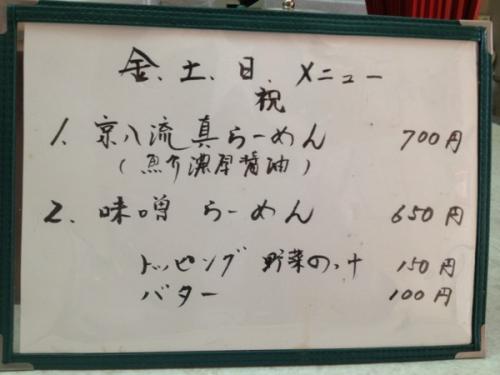 金、土、日、メニュー
祝
1、京八流真らーめん 700円
(魚介濃厚醤油)
2、味噌 らーめん 650円
トッピング 野菜のっけ 150円
バター 100円